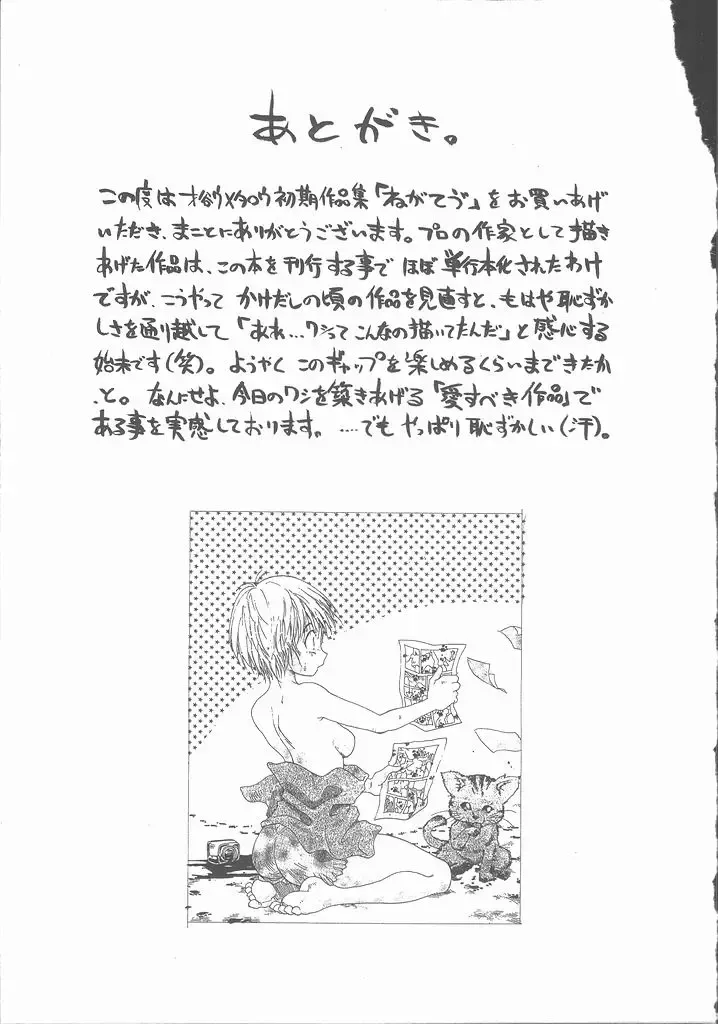 あとがき。
この度は才谷ウメタロウ初期作品集「ねがてゔ」をお買いあげ
いただき、まことにありがとうございます。プロの作家として描き
あげた作品は、この本を刊行する事でほぼ単行本化されたわけ
ですが、こうやって かけだしの頃の作品を見直すと、もはや恥ずか
しさを通り越して「あれ…ワシって こんなの描いてたんだ」と感心する
始末です(笑)。ようやく このギャップを楽しめるくらいまできたか
、と。なんにせよ、今日のワシを築きあげる「愛すべき作品」で
ある事を実感しております。……でも やっぱり恥ずかしい(汗)。